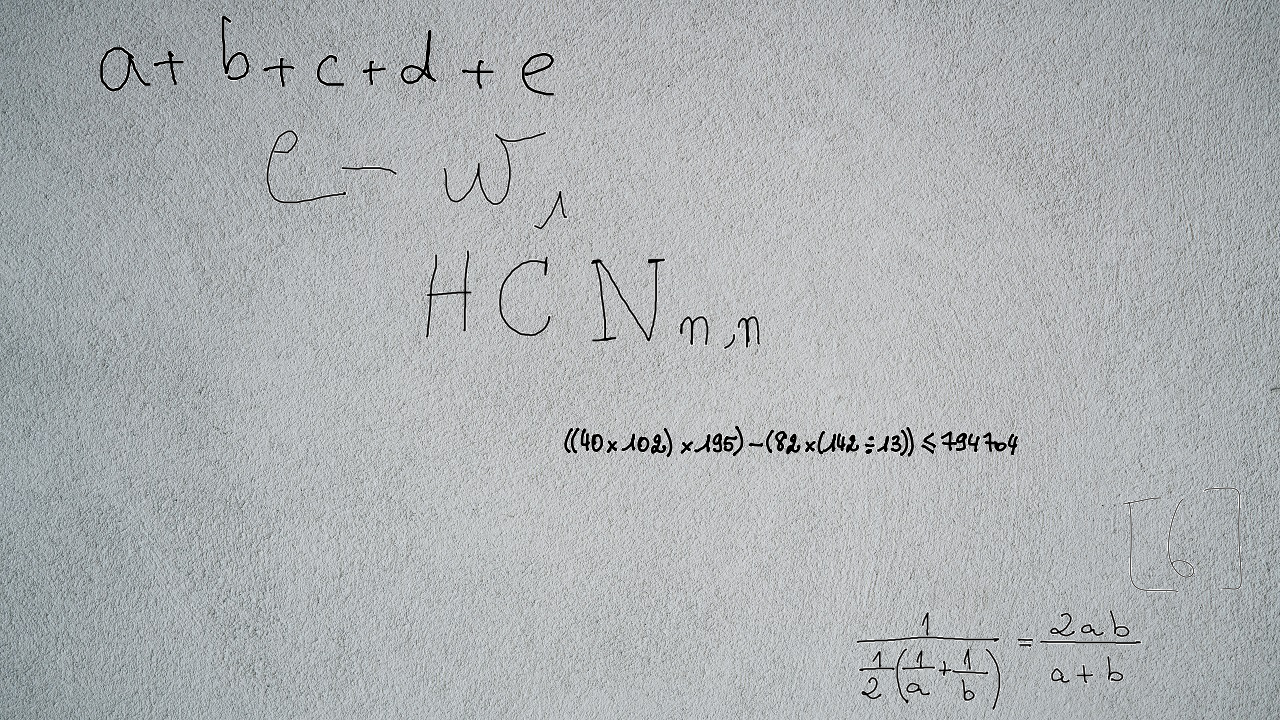 a + b + c + d + e
e - w₁
HCNₙ,ₙ
((40 × 102) × 195) - (82 × (142 ÷ 13)) ≤ 794704
[6]
1/(1/2(1/a + 1/b)) = 2ab/(a + b)